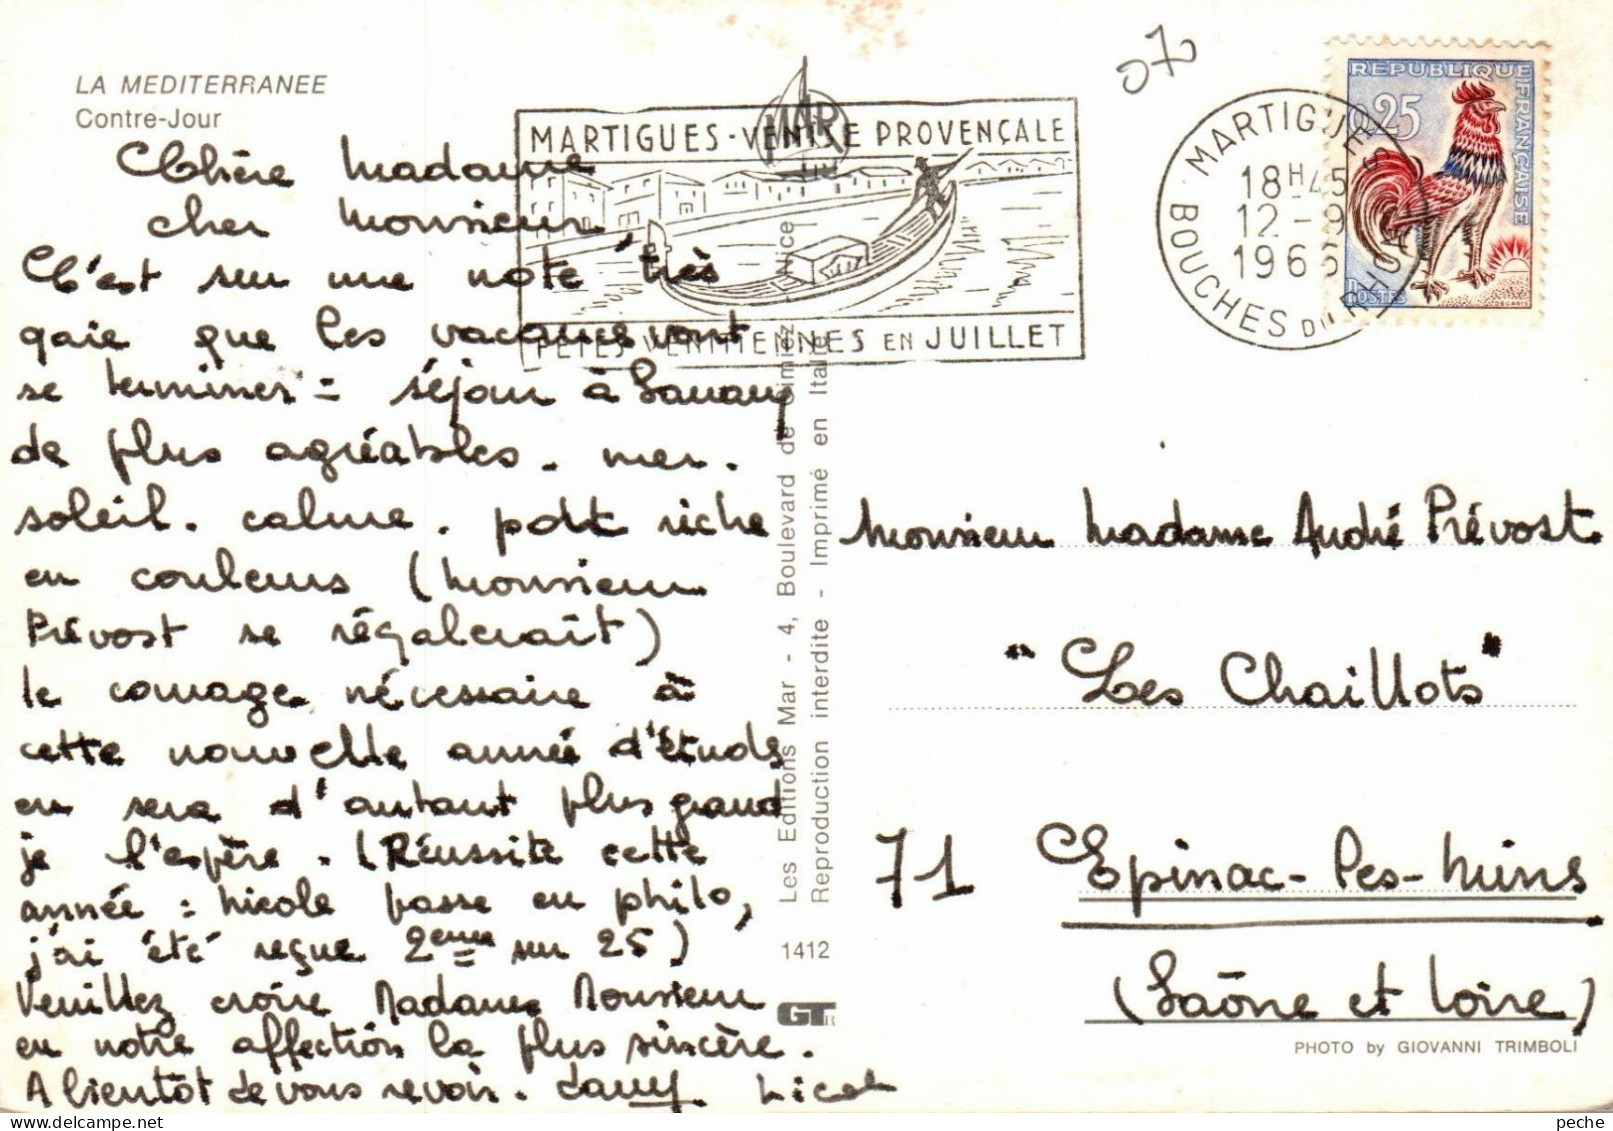 LA MEDITERRANEE
Contre-Jour
Chère Madame
cher Monsieur,
C'est sur une note très
gaie que les vacances vont
se terminer = séjour à Sanary
de plus agréables. mer.
soleil. calme. port riche
en couleurs (Monsieur
Prévost se régalerait)
le courage nécessaire à
cette nouvelle année d'études
en sera d'autant plus grand
je l'espère. (Réussite cette
année : Nicole passe en philo,
j'ai été reçue 2eme sur 25)
Veuillez croire Madame Monsieur
en notre affection la plus sincère.
A bientôt de vous revoir. Dany Nicole
MARTIGUES - VENISE PROVENÇALE
MAR
FETES VENITIENNES EN JUILLET
Les Editions Mar - 4, Boulevard de Cimiez - Nice
Reproduction interdite - Imprimé en Italie
1412
GT
070
MARTIGUES
18H45
12-9
1966
BOUCHES DU RHONE
REPUBLIQUE FRANÇAISE
0,25
POSTES
DECARIS
Monsieur Madame André Prévost
"Les Chaillots"
71 Epinac-les-Mines
(Saône et Loire)
PHOTO by GIOVANNI TRIMBOLI
peche